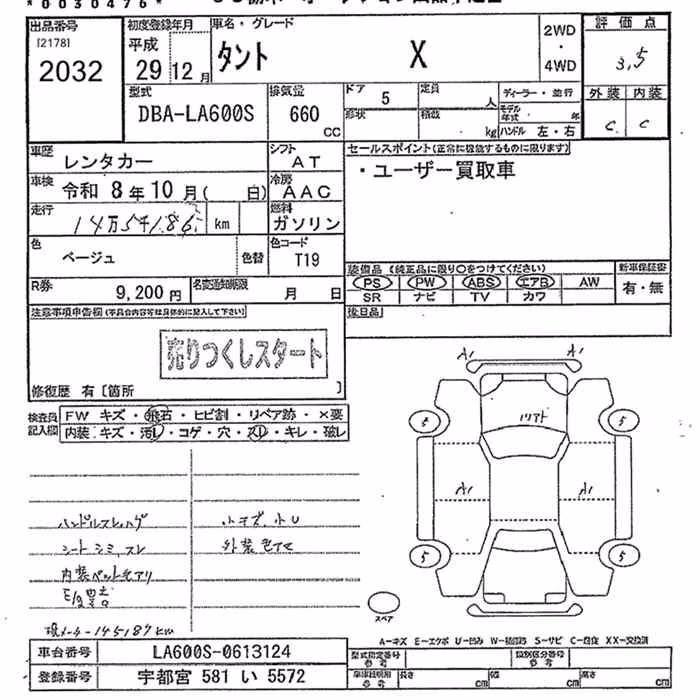 *0030476*
出品番号 初度登録年月 車名・グレード 2WD 評価点
[2178] 平成 タント X ・ 3.5
2032 29年12月 4WD
型式 排気量 ドア 5 定員 人 ディーラー・並行 外装 内装
DBA-LA600S 660 CC 形状 積載 kg モデル年式 年 C C
ハンドル 左・右
車歴 レンタカー シフト AT セールスポイント(正常に機能するものに限ります)
車検 令和 8年10月( 日) 冷房 AAC ・ユーザー買取車
走行 14万5千186 km 燃料 ガソリン
色 ベージュ 色替 色コード T19
装備品(純正品に限り○をつけてください) 新車保証書
R券 9,200円 名変通知期限 月 日 PS PW ABS エアB AW 有・無
SR ナビ TV カワ
注意事項申告欄(不具合内容等は具体的に記入して下さい) 後日品
売りつくしスタート
修復歴 有[箇所 ]
検査員記入欄 FW キズ・飛石・ヒビ割・リペア跡・×要
内装 キズ・汚レ・コゲ・穴・スレ・キレ・破レ
A1 A1
5 5
A1 A1
5 5
ハンドルスレ 小キズ、小U
シートシミ、スレ
内装ペット毛アリ
現メーター145187km
スペア
A-キズ E-エクボ U-凹み W-補修跡 S-サビ C-腐食 XX-交換済
車台番号 LA600S-0613124 型式指定番号 参考 類別区分番号 参考
登録番号 宇都宮 581 い 5572 車庫証明用 参考 長さ cm 幅 cm 高さ cm